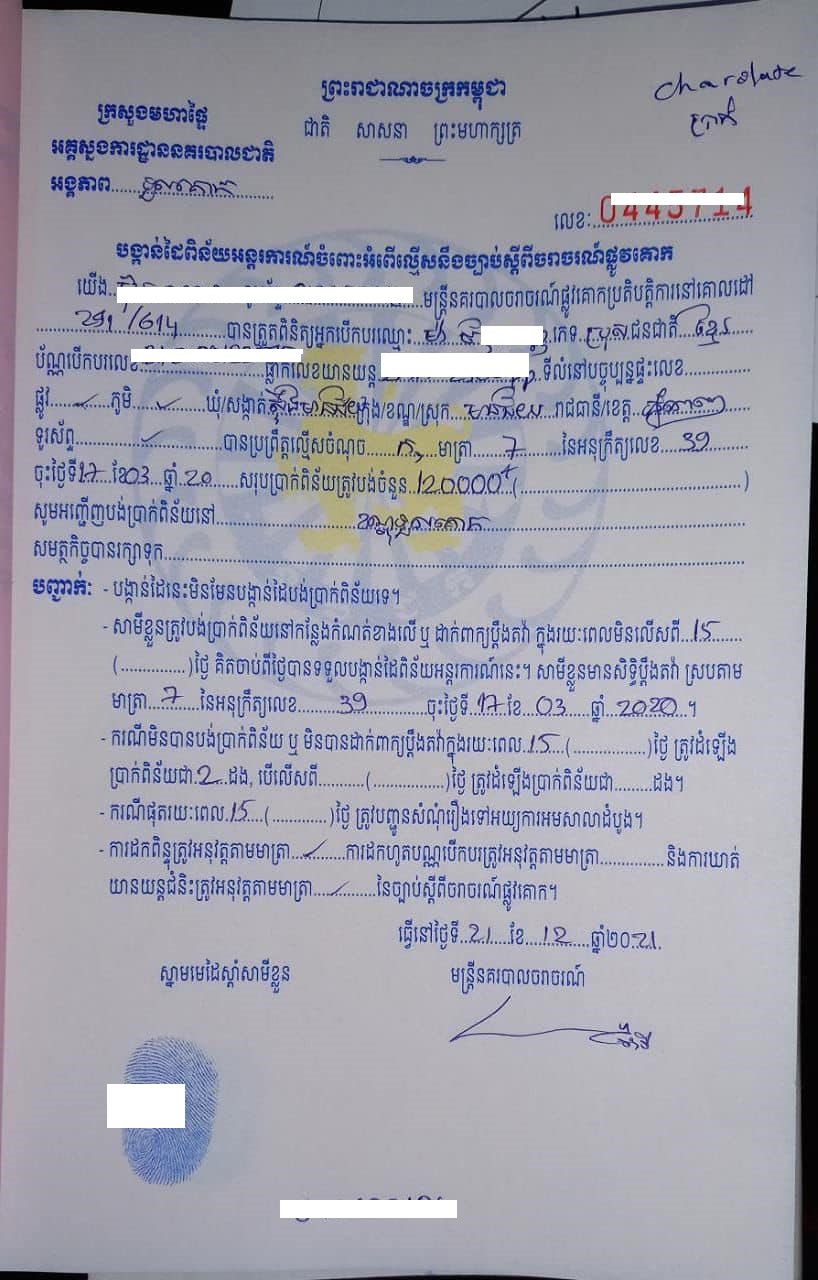 charolate
ប្រាក់
ព្រះរាជាណាចក្រកម្ពុជា
ក្រសួងមហាផ្ទៃ
ជាតិ សាសនា ព្រះមហាក្សត្រ
អគ្គស្នងការដ្ឋាននគរបាលជាតិ
អង្គភាព......ទួលគោក
លេខ:
បង្កាន់ដៃពិន័យអន្តរការណ៍ចំពោះអំពើល្មើសនឹងច្បាប់ស្តីពីចរាចរណ៍ផ្លូវគោក
យើង..........មន្ត្រីនគរបាលចរាចរណ៍ផ្លូវគោកប្រតិបត្តិការនៅគោលដៅ
291/614..........បានត្រួតពិនិត្យអ្នកបើកបរឈ្មោះ..........ភេទ..ប្រុស..ជនជាតិ..ខ្មែរ
ប័ណ្ណបើកបរលេខ..........ផ្លាកលេខយានយន្ត..........ទីលំនៅបច្ចុប្បន្នផ្ទះលេខ..........
ផ្លូវ..✓..ភូមិ..✓..ឃុំ/សង្កាត់..ស្ទឹងមានជ័យ..ក្រុង/ខណ្ឌ/ស្រុក..មានជ័យ..រាជធានី/ខេត្ត..ភ្នំពេញ
ទូរស័ព្ទ......✓......បានប្រព្រឹត្តល្មើសចំណុច......ក......មាត្រា......7......នៃអនុក្រឹត្យលេខ..39
ចុះថ្ងៃទី17..ខែ03..ឆ្នាំ..20..សរុបប្រាក់ពិន័យត្រូវបង់ចំនួន..120.000៛(..........)
សូមអញ្ជើញបង់ប្រាក់ពិន័យនៅ..........ខណ្ឌទួលគោក
សមត្ថកិច្ចបានរក្សាទុក..........
បញ្ជាក់: - បង្កាន់ដៃនេះមិនមែនបង្កាន់ដៃបង់ប្រាក់ពិន័យទេ។
- សាមីខ្លួនត្រូវបង់ប្រាក់ពិន័យនៅកន្លែងកំណត់ខាងលើ ឬ ដាក់ពាក្យប្តឹងតវ៉ា ក្នុងរយៈពេលមិនលើសពី..15......
(............)ថ្ងៃ គិតចាប់ពីថ្ងៃបានទទួលបង្កាន់ដៃពិន័យអន្តរការណ៍នេះ។ សាមីខ្លួនមានសិទ្ធិប្តឹងតវ៉ា ស្របតាម
មាត្រា..7..នៃអនុក្រឹត្យលេខ......39......ចុះថ្ងៃទី..17..ខែ..03..ឆ្នាំ..2020..។
- ករណីមិនបានបង់ប្រាក់ពិន័យ ឬ មិនបានដាក់ពាក្យប្តឹងតវ៉ាក្នុងរយៈពេល.15.(............)ថ្ងៃ ត្រូវដំឡើង
ប្រាក់ពិន័យជា.2..ដង, បើលើសពី..........(............)ថ្ងៃ ត្រូវដំឡើងប្រាក់ពិន័យជា.........ដង។
- ករណីផុតរយៈពេល.15.(............)ថ្ងៃ ត្រូវបញ្ជូនសំណុំរឿងទៅអយ្យការអមសាលាដំបូង។
- ការដកពិន្ទុត្រូវអនុវត្តតាមមាត្រា..✓..ការដកហូតបណ្ណបើកបរត្រូវអនុវត្តតាមមាត្រា..............និងការឃាត់
យានយន្តជំនិះត្រូវអនុវត្តតាមមាត្រា....✓....នៃច្បាប់ស្តីពីចរាចរណ៍ផ្លូវគោក។
ធ្វើនៅថ្ងៃទី..21..ខែ..12..ឆ្នាំ២០.21.
ស្នាមមេដៃស្តាំសាមីខ្លួន មន្ត្រីនគរបាលចរាចរណ៍